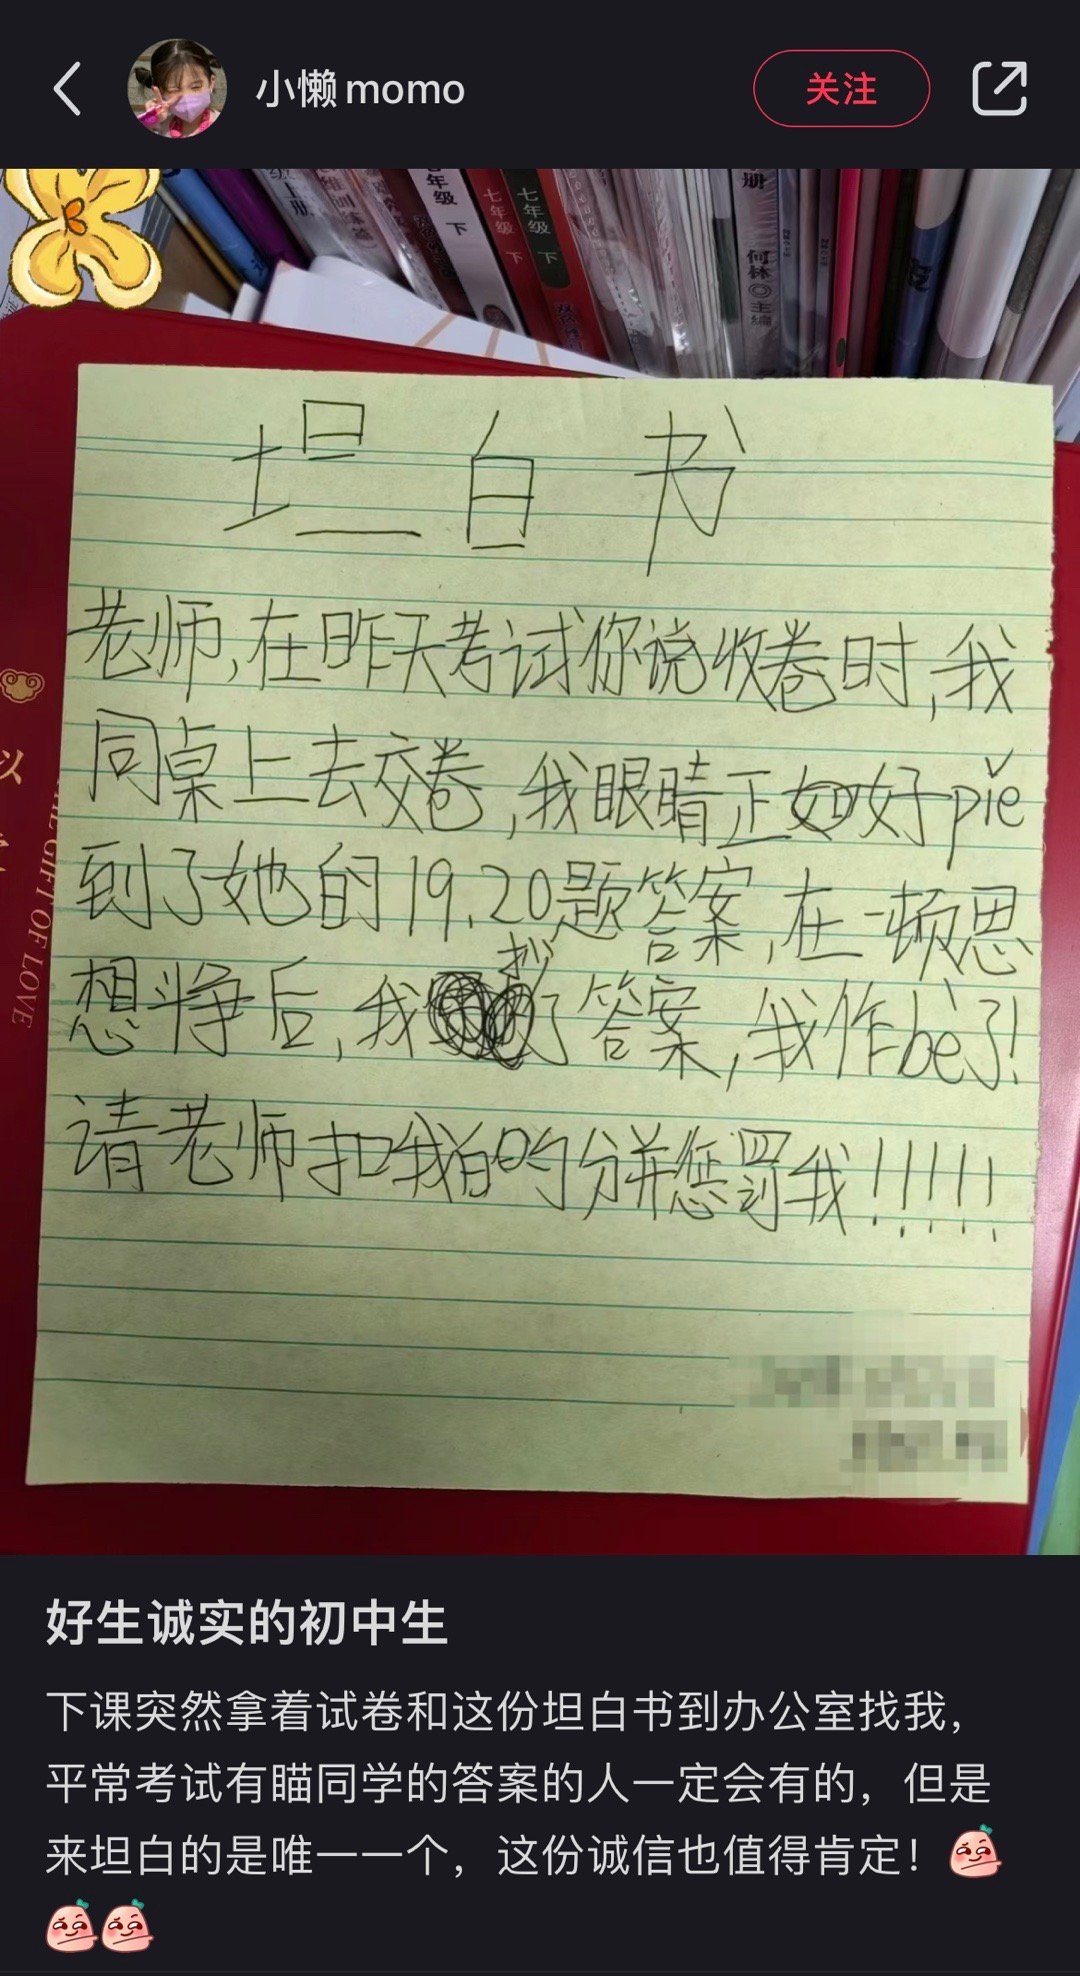 小懒momo
关注
上册
训练
七年级 下
七年级 下
七年级 下
册
何林◎主编
坦白书
老师,在昨天考试你说收卷时,我
同桌上去交卷,我眼睛正好piě
到了她的19.20题答案,在一顿思
想争后,我抄了答案,我作bè了!
请老师扣我的分并惩罚我!!!!!
以
THE GIFT OF LOVE
好生诚实的初中生
下课突然拿着试卷和这份坦白书到办公室找我，
平常考试有瞄同学的答案的人一定会有的，但是
来坦白的是唯一一个，这份诚信也值得肯定！